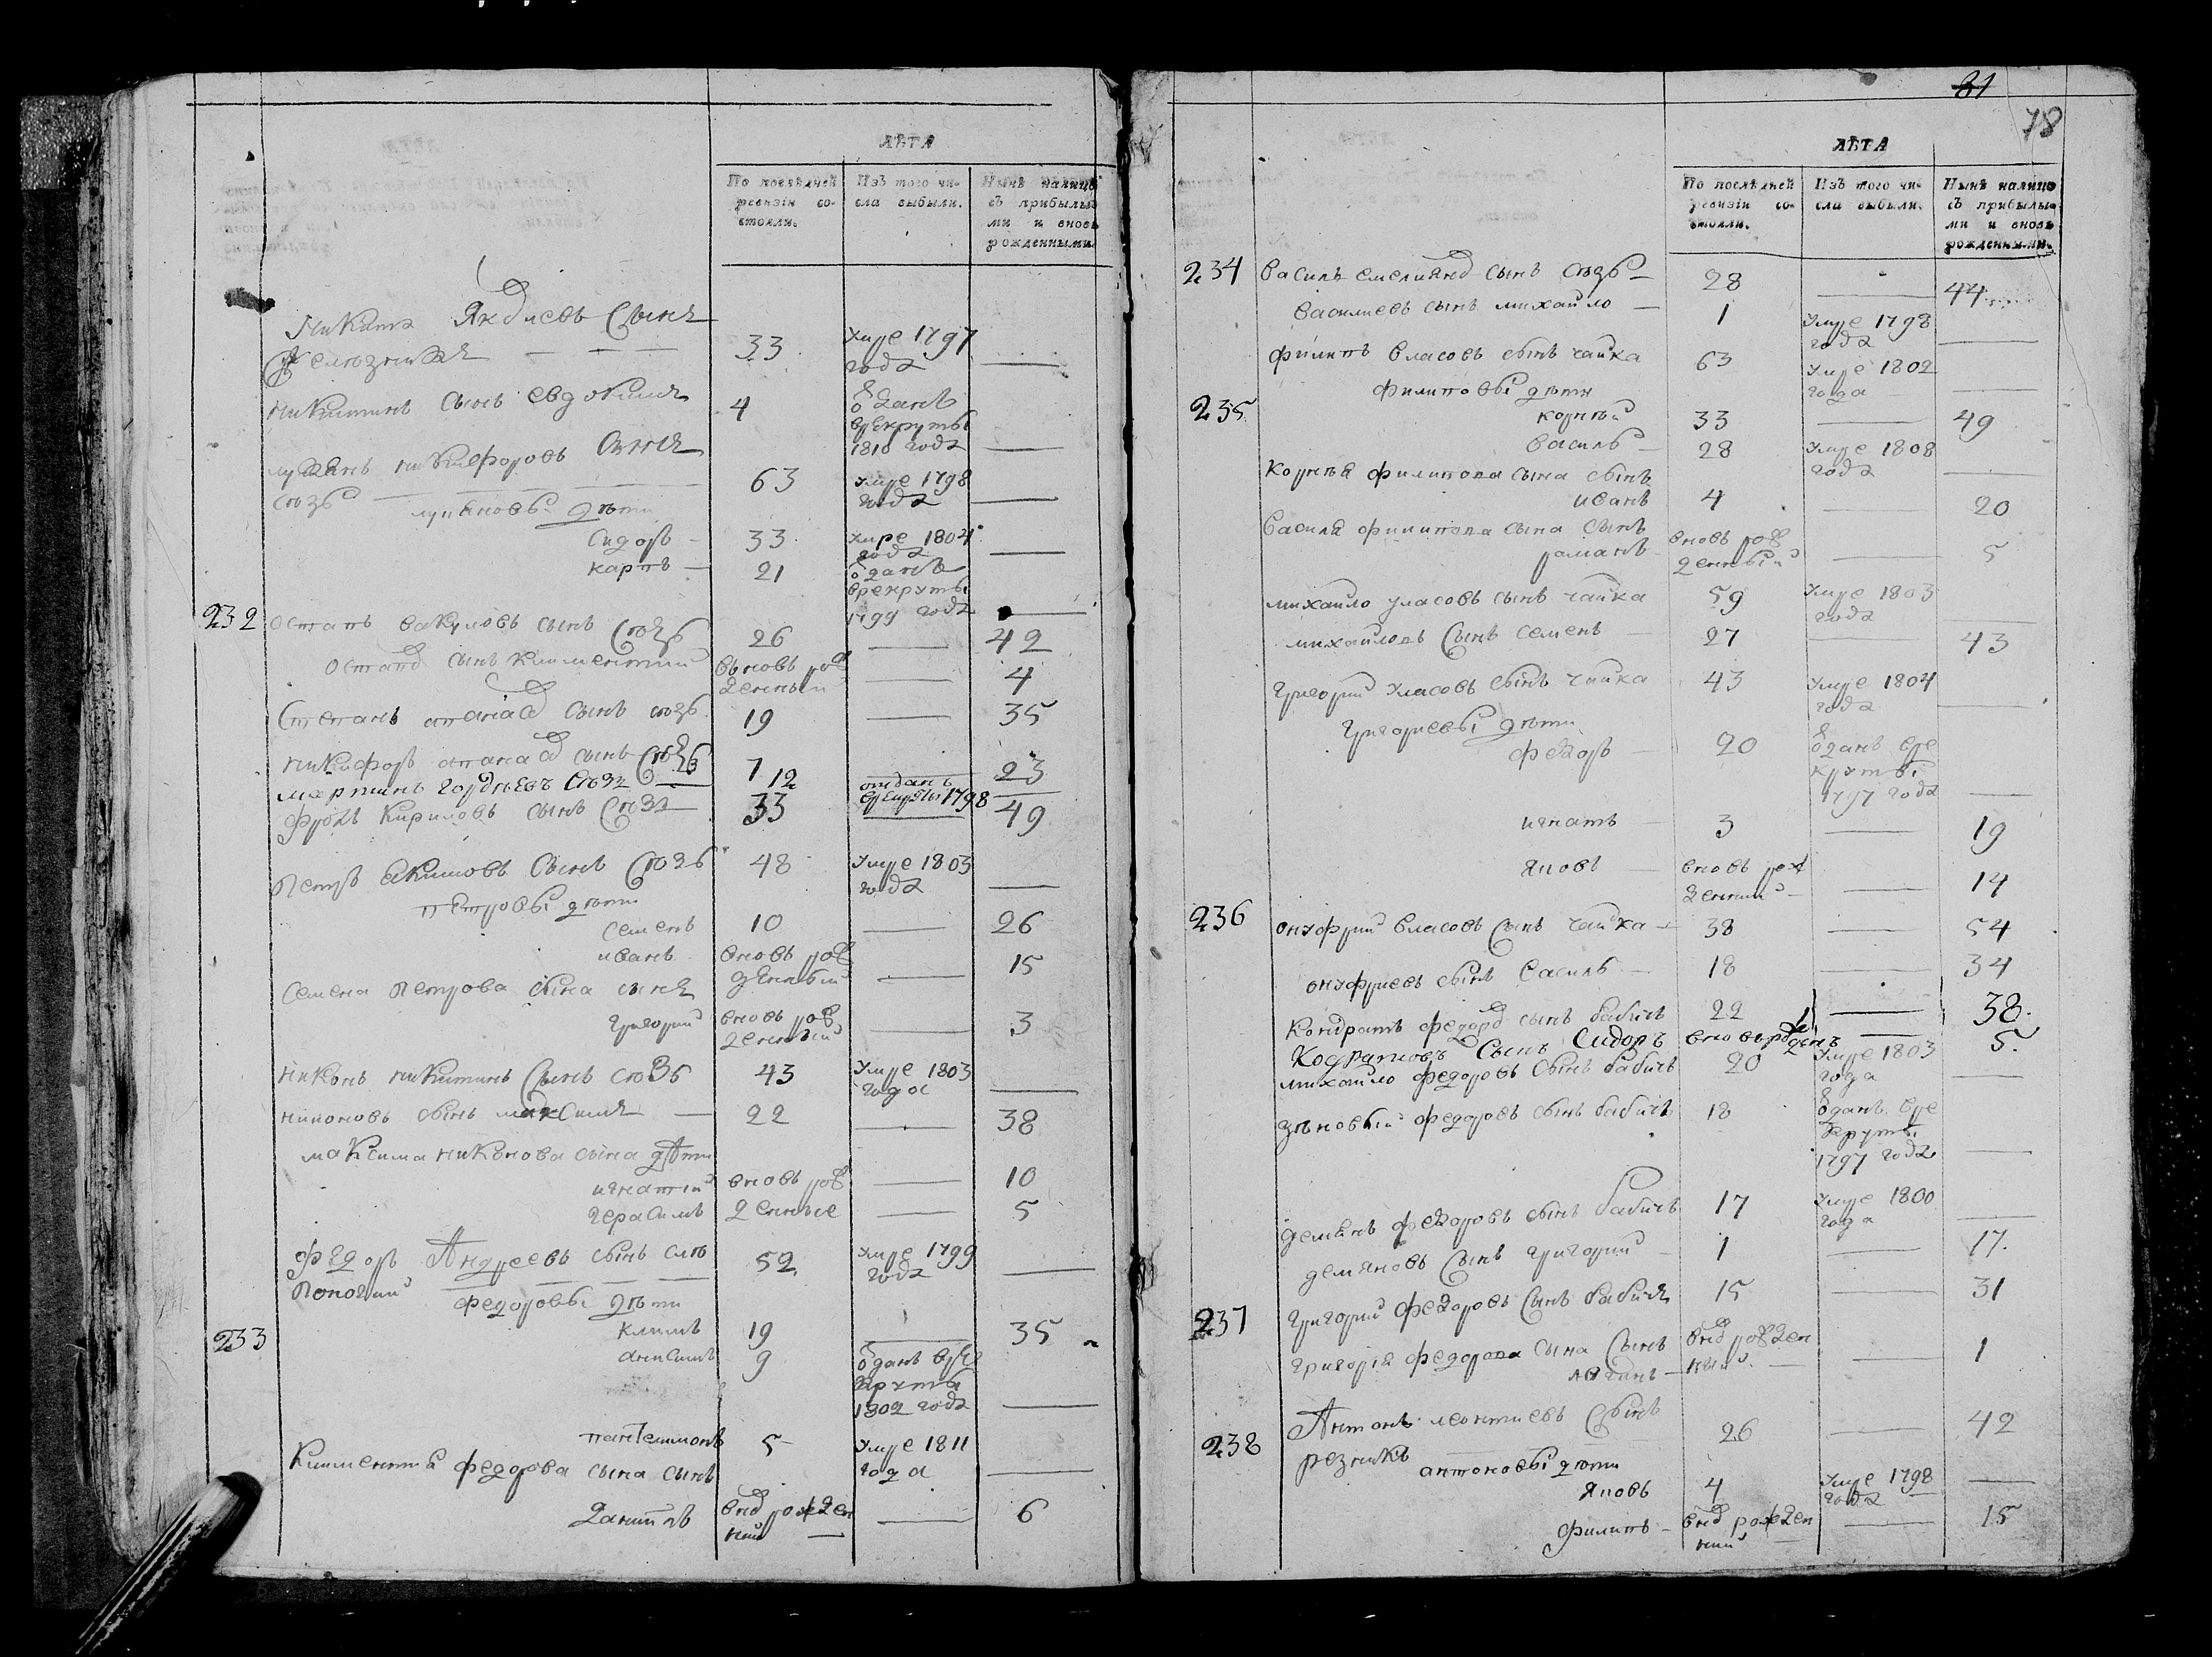 ЛѢТА
По послѣдней ревизіи состояли.
Изъ того числа выбыли.
Нынѣ налицо съ прибылыми и вновь рожденными.
Никита Яковлевъ Сынъ 33 Умре 1797 года —
Никитинъ сынъ евдокимъ 4 оданъ врекруты 1810 года —
лукянъ никифоровъ Сынъ
сюзь 63 умре 1798 года —
лукяновы дѣти
Сидоръ 33 умре 1804 года —
карпъ 21 оданъ врекруты 1799 года —
232 остапъ вакуловъ сынъ Сюзь 26 — 42
остапов сынъ климентий вьновь рожденный — 4
Степанъ сынъ сюзь 19 — 35
никифоръ сынъ Сюзь 7 — 23
мартинъ гордѣевъ Сюзь 12 отданъ врекруты 1798 —
фролъ кириловъ сынъ Сюзь 33 — 49
Петръ Акимовъ Сынъ Сюзь 48 Умре 1803 года —
петровы дѣти
семенъ 10 — 26
иванъ вновь рожденный — 15
Семена Петрова сына сынъ
григорий вновь рожденный — 3
Никонъ никитинъ Сынъ сюзь 43 Умре 1803 года —
никоновъ сынъ максимъ 22 — 38
максима никонова сына дѣти
игнатий вновь рож — 10
герасимъ денные — 5
федоръ Андреевъ сынъ слю
52 умре 1799 года —
федоровы дѣти
233 климъ 19 — 35
анисимъ 9 оданъ врекруты 1802 года —
пантелимонъ 5 Умре 1811 года —
Климентія федорова сына сынъ
Данило внов рожденний — 6
81
78
ЛѢТА
По послѣдней ревизіи состояли.
Изъ того числа выбыли.
Нынѣ налицо съ прибылыми и вновь рожденными.
234 василь емелиянов сынъ сюзь 28 — 44
василиевъ сынъ михайло 1 Умре 1798 года —
филипъ власовъ сынъ чайка 63 умре 1802 года —
филиповы дѣти
235 корнѣй 33 — 49
василь 28 Умре 1808 года —
Корнѣя филипова сына сынъ
иванъ 4 — 20
Василя филипова сына сынъ
романъ вновь рожденный — 5
михайло уласовъ сынъ чайка 59 Умре 1803 года —
михайловъ Сынъ семенъ 27 — 43
григорий уласовъ сынъ чайка 43 Умре 1804 года —
григориевы дѣти
федоръ 20 оданъ врекруты 1797 года —
игнатъ 3 — 19
яковъ вновь рожденний — 14
236 онуфрий власовъ сынъ чайка 38 — 54
онуфриевъ сынъ василь 18 — 34
Кондратъ федоров сынъ бабичъ 22 — 38.
Кодратовъ Сынъ Сидоръ вновьрожденъ — 5.
михайло федоровъ сынъ бабичъ 20 Умре 1803 года —
зѣновый федоровъ сынъ бабичъ 18 оданъ врекруты 1797 года —
демянъ федоровъ сынъ бабичъ 17 умре 1800 года —
демяновъ Сынъ григорий 1 — 17.
237 григорий федоровъ Сынъ бабичъ 15 — 31
григорія федорова сына Сынъ
внов рожденный — 1
238 Антонъ леонтиевъ Сынъ
резникъ 26 — 42
антоновы дѣти
яковъ 4 Умре 1798 года —
филипъ внов рожденний — 15